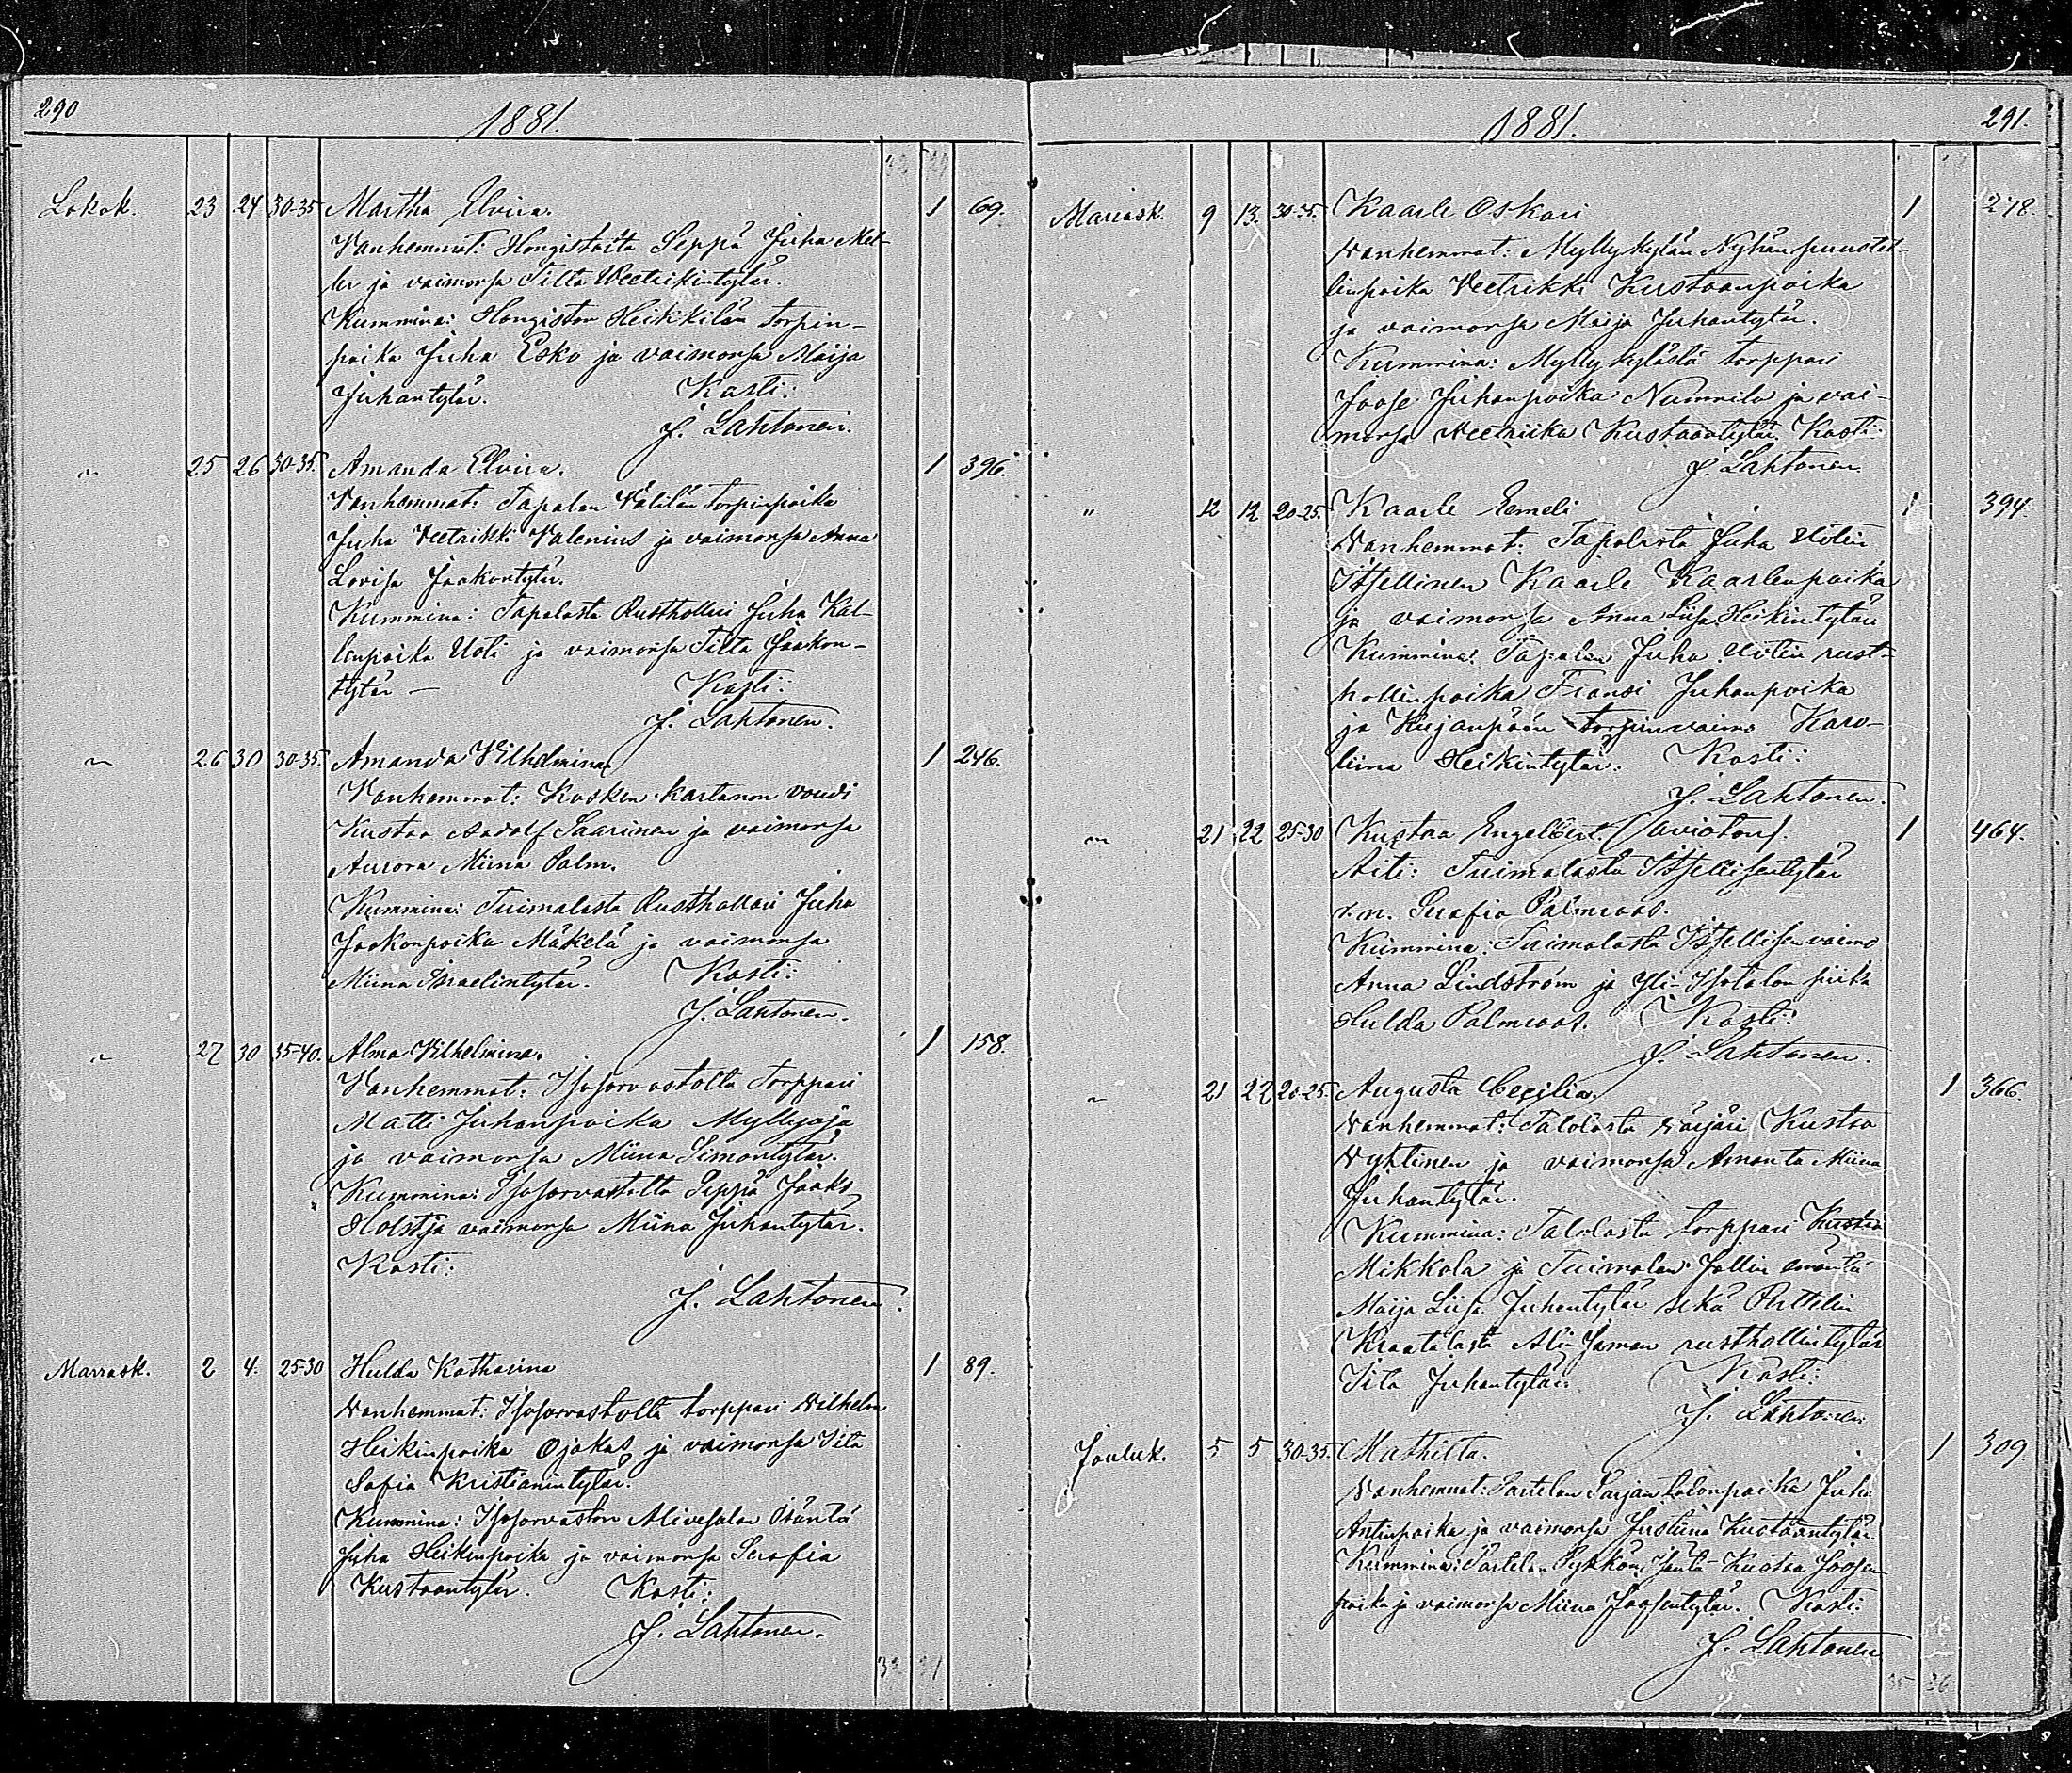 290
1881.
Lokak. 23 24 30-35 Martha Elvira. 1 69.
Vanhemmat: Hongistosta Seppä Juha Mel-
ler ja vaimonsa Tilta Veetrikintytär.
Kummina: Hongiston Heikkilän torpin-
poika Juha Esko ja vaimonsa Maija
Juhantytär. Kasti:
J. Lahtonen.
" 25 26 30-35. Amanda Elvira. 1 396.
Vanhemmat: Tapalan Välilän torpinpoika
Juha Veetrikki Valenius ja vaimonsa Anna
Lovisa Jaakontytär.
Kummina: Tapalasta Rusthollari Juha Kal-
lenpoika Uoti ja vaimonsa Tilta Jaakon-
tytär — Kasti:
J. Lahtonen.
" 26 30 30-35. Amanda Vilhelmina 1 246.
Vanhemmat: Kosken kartanon vouti
Kustaa Aadolf Saarinen ja vaimonsa
Aurora Miina Palm.
Kummina: Tuimalasta Rusthollari Juha
Jaakonpoika Mäkelä ja vaimonsa
Miina Israelintytär. Kasti:
J. Lahtonen.
" 27 30 35-40. Alma Vilhelmina. 1 158.
Vanhemmat: Isosorvastolta torppari
Matti Juhanpoika Myllyoja
ja vaimonsa Miina Simontytär.
Kummina: Isosorvastolta Seppä Jaako
Holst ja vaimonsa Miina Juhantytär.
Kasti:
J. Lahtonen.
Marrask. 2 4. 25-30 Hulda Katharina 1 89.
Vanhemmat: Isosorvastolta torppari Vilhelm
Heikinpoika Ojakas ja vaimonsa Iita
Sofia Kristianintytär.
Kummina: Isosorvaston Alivesalan Isäntä
Juha Heikinpoika ja vaimonsa Serafia
Kustaantytär. Kasti:
J. Lahtonen.
32 31
1881.
291.
Marrask. 9 13. 30-35. Kaarle Oskari 1 278.
Vanhemmat: Myllykylän
linpoika Veetrikki Kustaanpoika
ja vaimonsa Maija Juhantytär.
Kummina: Myllykylästä torppari
Joose Juhanpoika Nummila ja vai-
monsa Veetriika Kustaantytär. Kasti:
J. Lahtonen.
" 12 12 20-25. Kaarle Eemeli 1 394.
Vanhemmat: Tapalasta Juha Uotin
Itsellinen Kaarle Kaarlenpoika
ja vaimonsa Anna Liisa Heikintytär
Kummina: Tapalan Juha Uotin rust-
hollinpoika Fransi Juhanpoika
ja Kujanpään torpinvaimo Karo-
liina Heikintytär. Kasti:
J. Lahtonen.
" 21 22 25-30 Kustaa Engelbert. (aviotons. 1 464.
Äiti: Tuimalasta Itsellisentytär
r. n. Serafia Palmroos.
Kummina: Tuimalasta Itsellisen vaimo
Anna Lindström ja Yli-Isotalon piika
Hulda Palmroos. Kasti:
J. Lahtonen.
" 21 22 20-25. Augusta Cecilia. 1 366.
Vanhemmat: Talolasta Värjäri Kustaa
Nyhtinen ja vaimonsa Amanta Miina
Juhantytär.
Kummina: Talolasta torppari Kustaa
Mikkola ja Tuimalan Jallin emäntä
Maija Liisa Juhantytär sekä Perttelin
Kraatalasta Ali-Jaman rusthollintytär
Iita Juhantytär. Kasti:
J. Lahtonen
Jouluk. 5 5 30-35. Mathilta. 1 309.
Vanhemmat: Partelan talonpoika Juha
Antinpoika ja vaimonsa Justiina Kustaantytär.
Kummina: Partelan Isäntä Kustaa Joosen-
poika ja vaimonsa Miina Joosentytär. Kasti:
J. Lahtonen
35 36